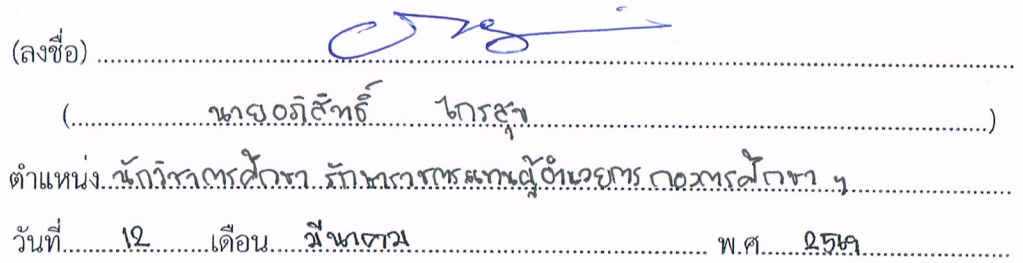 (ลงชื่อ)
(นายอภิสิทธิ์ ไกรสุข)
ตำแหน่ง นักวิชาการศึกษา รักษาราชการแทนผู้อำนวยการกองการศึกษา ฯ
วันที่ 12 เดือน มีนาคม พ.ศ. 2569